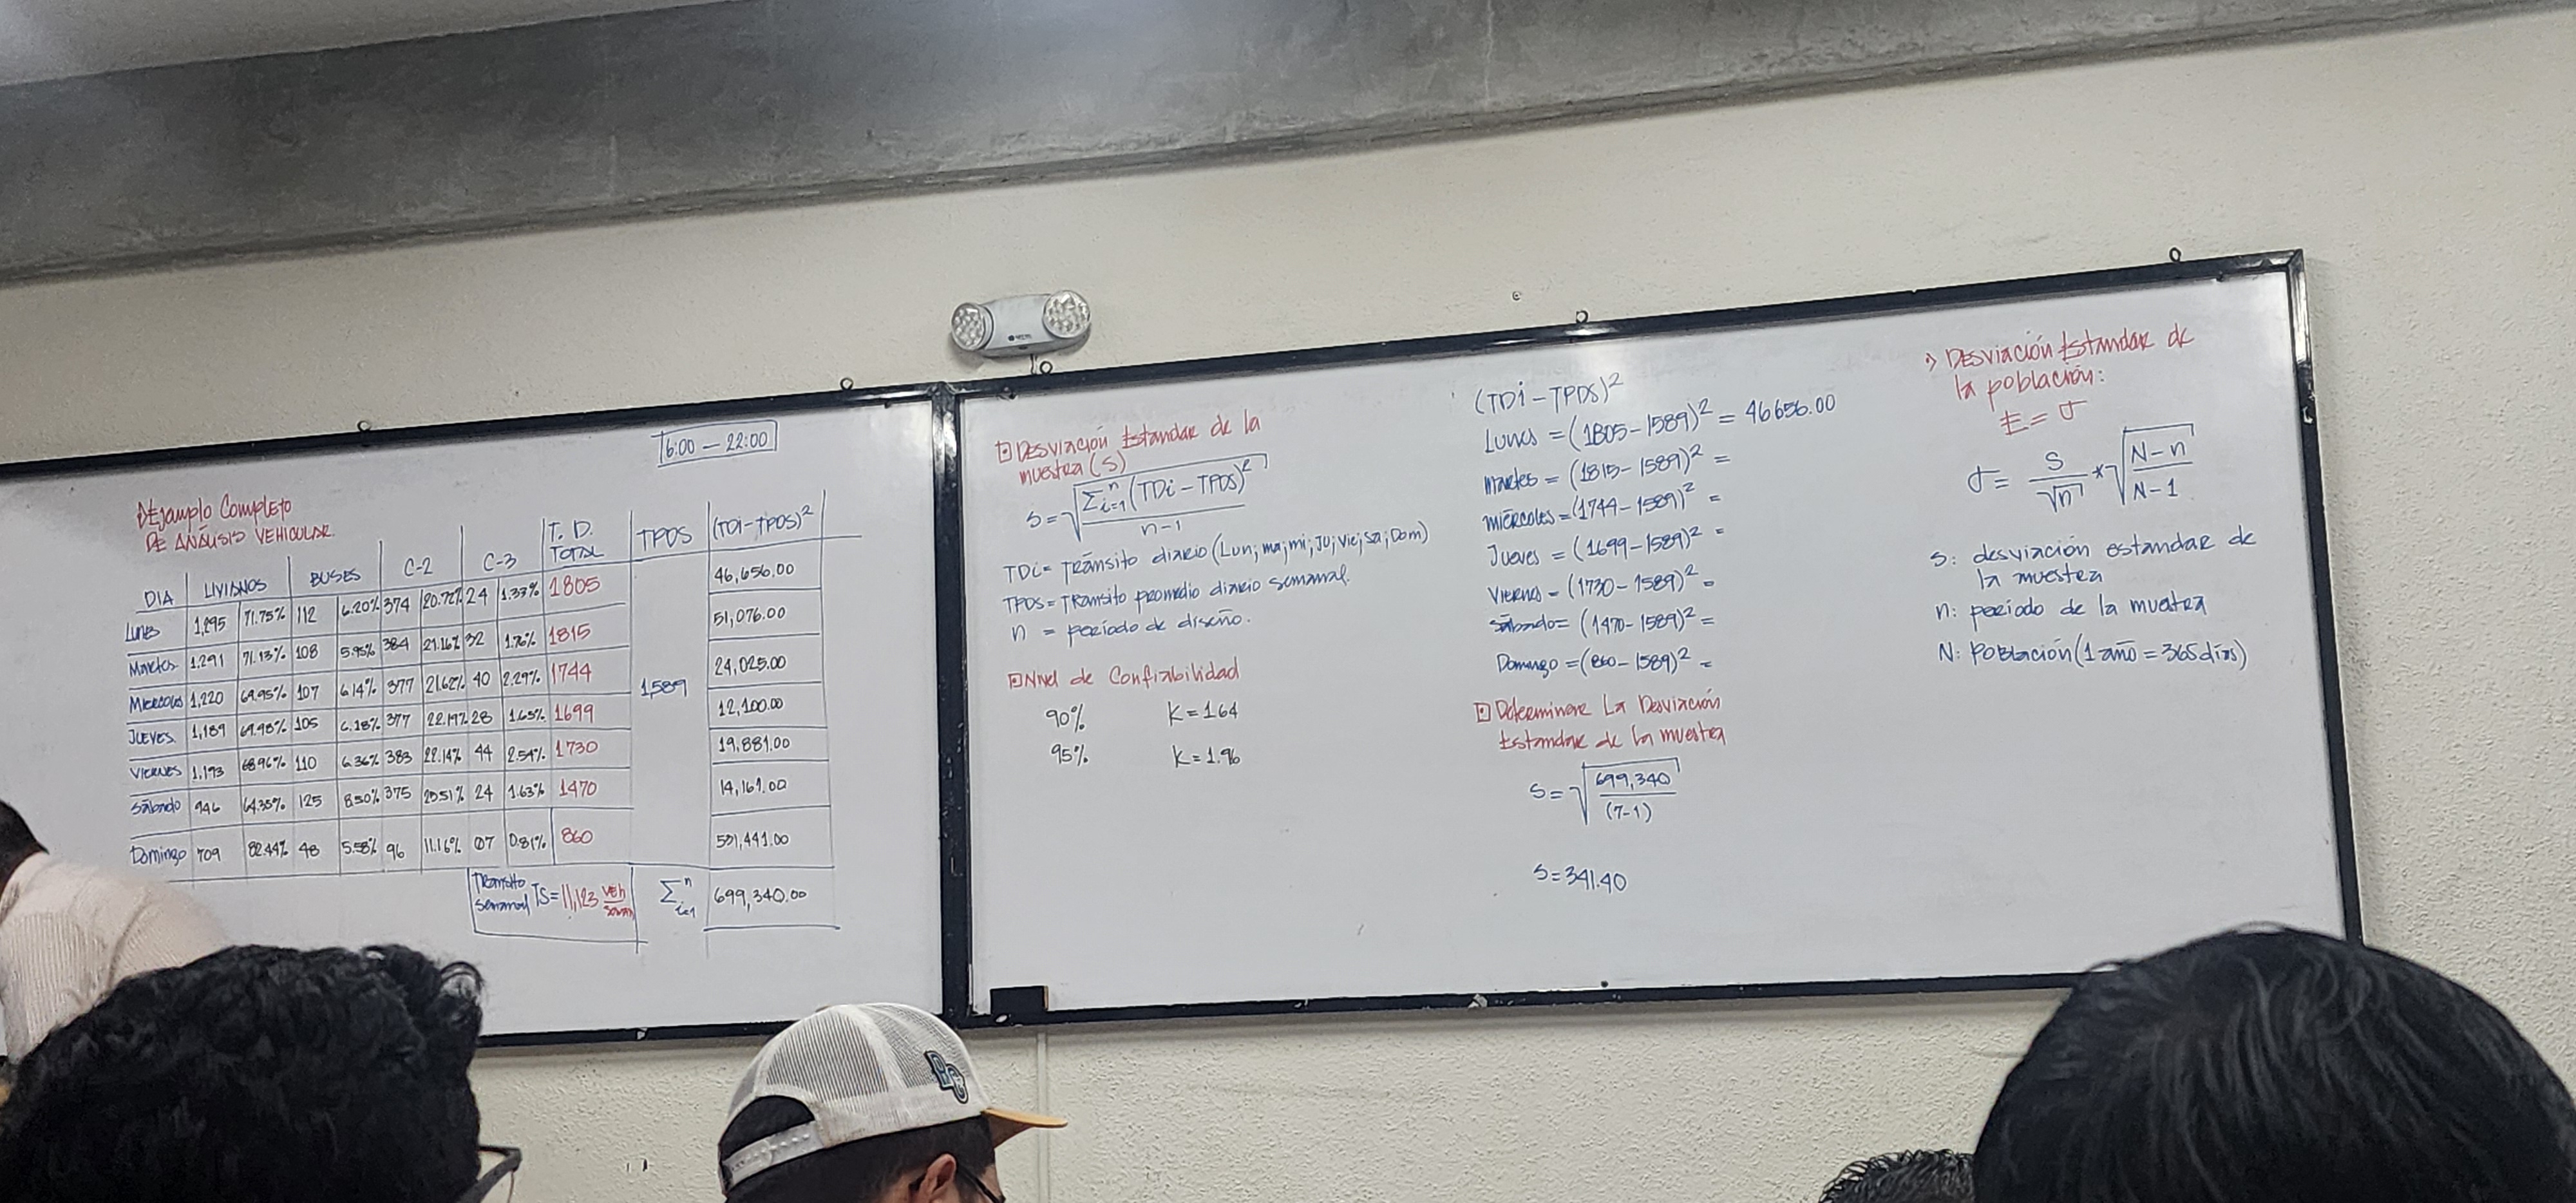 6:00 — 22:00
Ejemplo Completo
DE ANÁLISIS VEHICULAR
DIA | LIVIANOS | BUSES | C-2 | C-3 | T. D. TOTAL | TPDS | (TDi-TPDS)²
Lunes | 1,295 | 71.75% | 112 | 6.20% | 374 | 20.72% | 24 | 1.33% | 1805 | 46,656.00
Martes | 1,291 | 71.13% | 108 | 5.95% | 384 | 21.16% | 32 | 1.76% | 1815 | 51,076.00
Miercoles | 1,220 | 69.95% | 107 | 6.14% | 377 | 21.62% | 40 | 2.29% | 1744 | 1,589 | 24,025.00
JUEVES | 1,189 | 69.98% | 105 | 6.18% | 377 | 22.19% | 28 | 1.65% | 1699 | 12,100.00
VIERNES | 1,193 | 68.96% | 110 | 6.36% | 383 | 22.14% | 44 | 2.54% | 1730 | 19,881.00
Sábado | 946 | 64.35% | 125 | 8.50% | 375 | 25.51% | 24 | 1.63% | 1470 | 14,161.00
Domingo | 709 | 82.44% | 48 | 5.58% | 96 | 11.16% | 07 | 0.81% | 860 | 531,441.00
Transito semanal TS = 11,123 veh/seman | Σ i=1 n | 699,340.00
Desviación Estandar de la
muestra (S)
S = √(Σ i=1 n (TDi - TPDS)² / n-1)
TDi = Tránsito diario (Lun; ma; mi; Ju; Vie; Sa; Dom)
TPDS = Transito promedio diario semanal.
n = período de diseño.
Nivel de Confiabilidad
90% K = 1.64
95% K = 1.96
(TDi - TPDS)²
Lunes = (1805 - 1589)² = 46656.00
Martes = (1815 - 1589)² =
miércoles = (1744 - 1589)² =
Jueves = (1699 - 1589)² =
Viernes = (1730 - 1589)² =
Sábado = (1470 - 1589)² =
Domingo = (860 - 1589)² =
Determinar La Desviación
Estandar de la muestra
S = √(699,340 / (7-1))
S = 341.40
Desviación Estandar de
la población:
E = σ
σ = S/√n * √(N-n / N-1)
S: desviación estandar de
la muestra
n: período de la muestra
N: Población (1 año = 365 días)